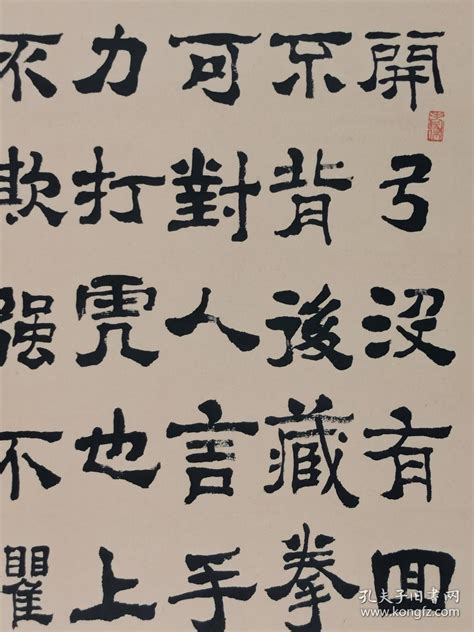 開弓没有回
不背後藏拳
可對人言手
力打虎也上
不欺强不瞿
孔夫子旧书网
www.kongfz.com